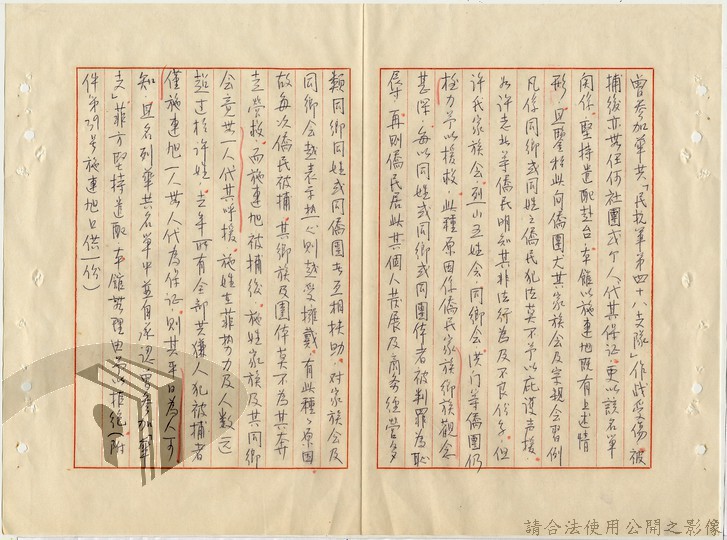 曾參加華共「民抗軍第四十八支隊」作戰受傷，被
捕後亦無任何社團或個人代其保証，更以該名單
関係，堅持遣配赴台，本館以施連旭既有上述情
形，且鑒於此向僑團尤其家族會及宗親會習例
凡係同鄉或同姓之僑民犯法莫不予以庇護声援，
如許志北等僑民明知其非法行為及不良份子，但
許氏家族會、列山五姓會、同鄉會、洪门等僑團仍
極力予以援救，此種原因係僑民家族、鄉族觀念
甚深，每以同姓或同鄉或同團体者被判罪為恥
辱，再則僑民居此其個人發展及商务經營多
類同鄉同姓或同僑團者互相扶助，对家族會及
同鄉会越表示热心則越受擁戴，有此種之原因
故每次僑民被捕，其鄉族及團体莫不為其奔
走營救，而施連旭被捕後，施姓家族及其同鄉
会竟無一人代其呼援，施姓在菲势力及人数远
超过於许姓，去年所有全部共嫌人犯被捕者
僅施連旭一人無人代為保证，則其平日為人可
知，且名列華共名單中並自承認「曾參加軍
夫」，菲方堅持遣配，本館無理由予以拒绝（附
件第39号施連旭口供一份）
請合法使用公開之影像